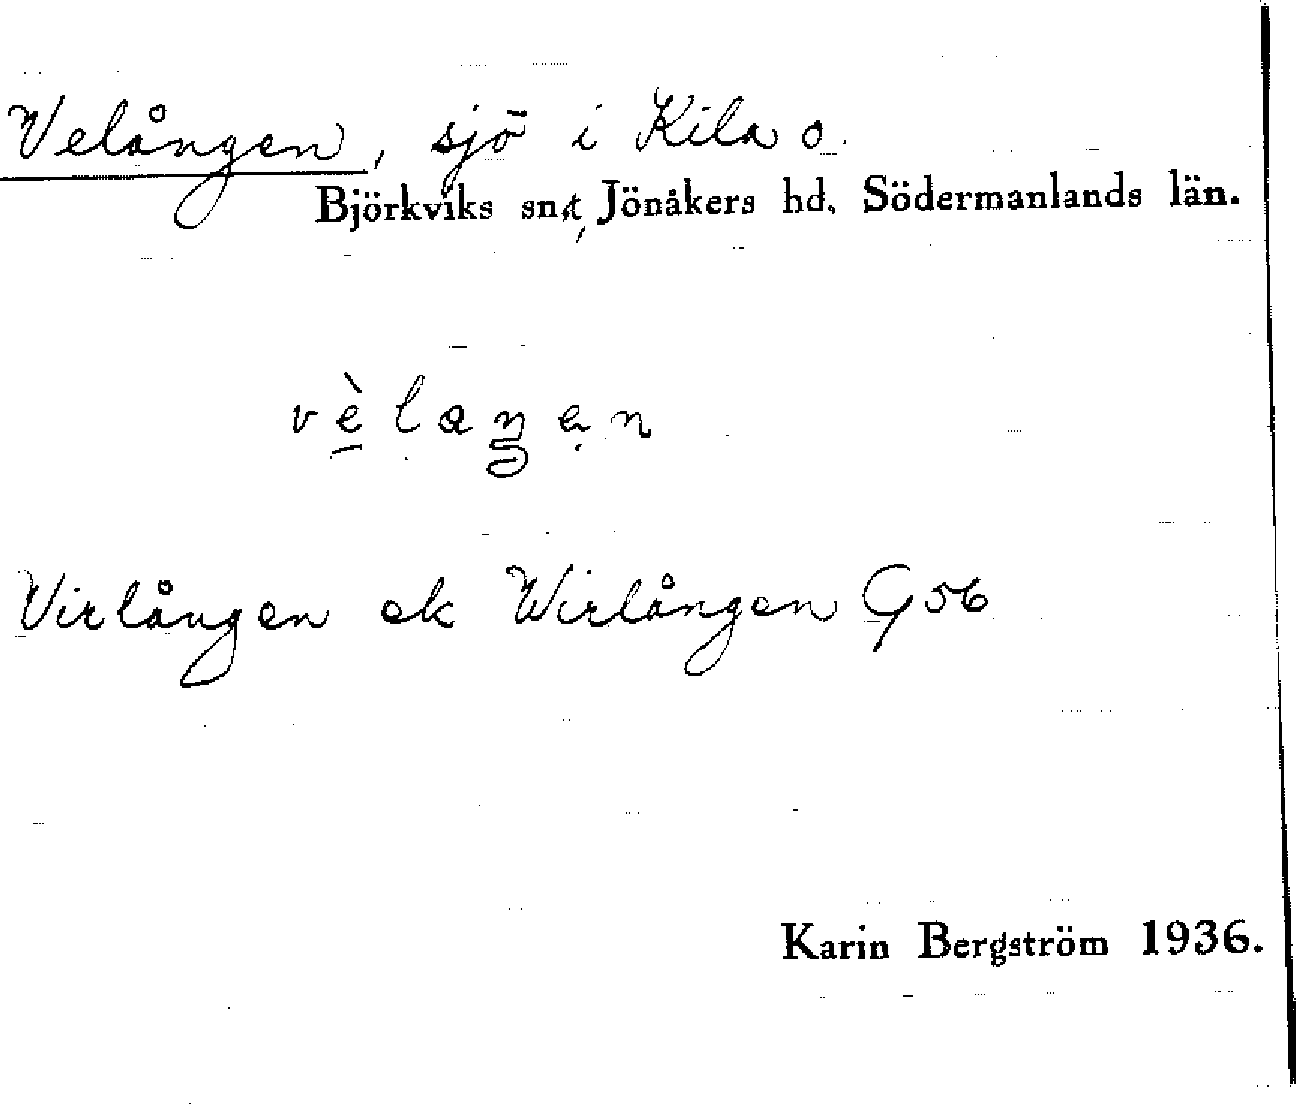 Velången, sjö i Kila o.
Björkviks snr, Jönåkers hd. Södermanlands län.
vèlaŋen
Virlången ek Wirlången G56
Karin Bergström 1936.